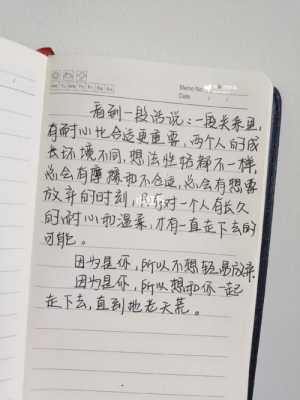 Memo No.
Date / /
看到一段话说：一段关系里，
有耐心比合适更重要，两个人的成
长环境不同，想法性格都不一样，
总会有摩擦和不合适，总会有想要
放弃的时刻，只有对一个人有长久
的耐心和温柔，才有一直走下去的
可能。
因为是你，所以不想轻易放弃
因为是你，所以想和你一起
走下去，直到地老天荒。